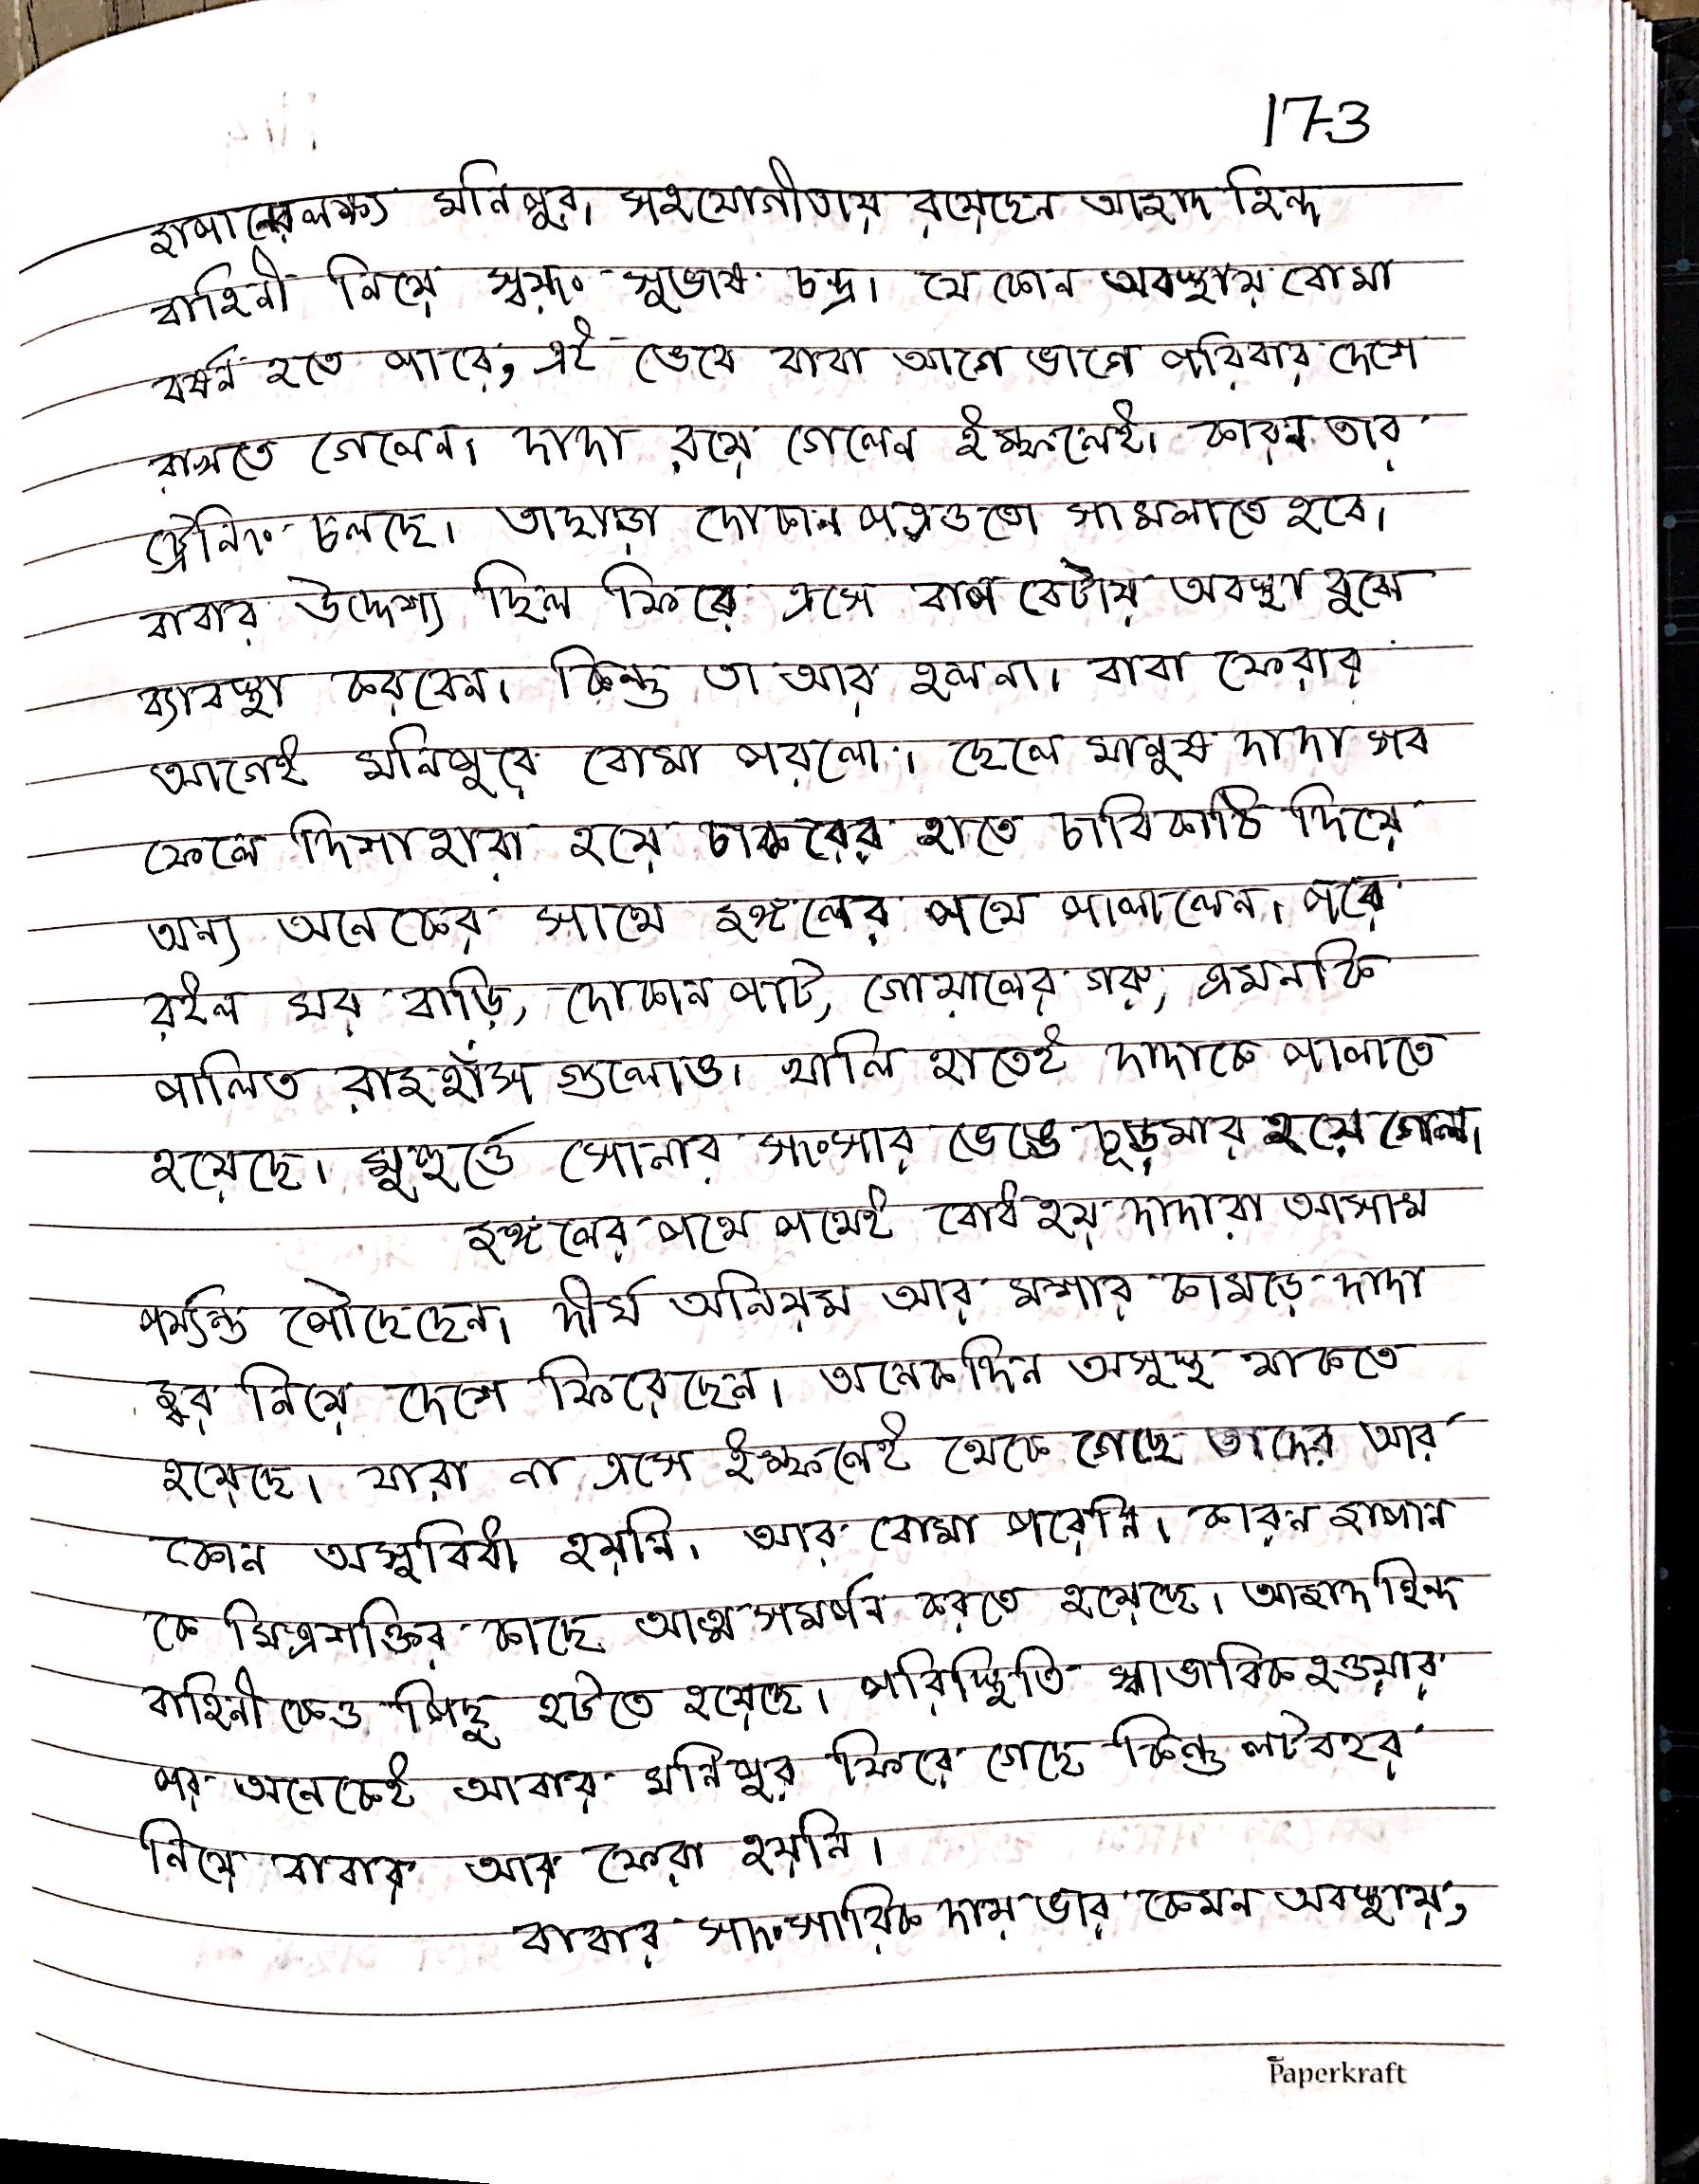 173
জাপানের লক্ষ্য মনিপুর। সহযোগীতায় রয়েছেন আজাদ হিন্দ
বাহিনী নিয়ে স্বয়ং সুভাষ চন্দ্র। যে কোন অবস্থায় বোমা
বর্ষন হতে পারে, এই ভেবে বাবা আগে ভাগে পরিবার দেশে
রাখতে গেলেন। দাদা রয়ে গেলেন ইম্ফলেই। কারন তার
ট্রেনিং চলছে। তাছাড়া দোকান পত্রওতো সামলাতে হবে।
বাবার উদ্দেশ্য ছিল ফিরে এসে বাপ বেটায় অবস্থা বুঝে
ব্যাবস্থা করবেন। কিন্তু তা আর হলনা। বাবা ফেরার
আগেই মনিপুরে বোমা পরলো। ছেলে মানুষ দাদা সব
ফেলে দিশাহারা হয়ে চাকরের হাতে চাবিকাঠি দিয়ে
অন্য অনেকের সাথে জঙ্গলের পথে পালালেন। পরে
রইল ঘর বাড়ি, দোকান পাট, গোয়ালের গরু, এমনকি
পালিত রাজহাঁস গুলোও। খালি হাতেই দাদাকে পালাতে
হয়েছে। মুহুর্ত্তে সোনার সংসার ভেঙে চূড়মার হয়ে গেল।
জঙ্গলের পথে পথেই বোধ হয় দাদারা আসাম
পর্য্যন্ত পৌছেছেন। দীর্ঘ অনিয়ম আর মশার কামড়ে দাদা
জ্বর নিয়ে দেশে ফিরেছেন। অনেকদিন অসুস্থ থাকতে
হয়েছে। যারা না এসে ইম্ফলেই থেকে গেছে তাদের আর
কোন অসুবিধা হয়নি। আর বোমা পরেনি। কারন জাপান
কে মিত্রশক্তির কাছে আত্মসমর্পন করতে হয়েছে। আজাদ হিন্দ
বাহিনীকেও পিছু হটতে হয়েছে। পরিস্থিতি স্বাভাবিক হওয়ার
পর অনেকেই আবার মনিপুর ফিরে গেছে কিন্তু লটবহর
নিয়ে বাবার আর ফেরা হয়নি।
বাবার সাংসারিক দায় ভার কেমন অবস্থায়,
Paperkraft